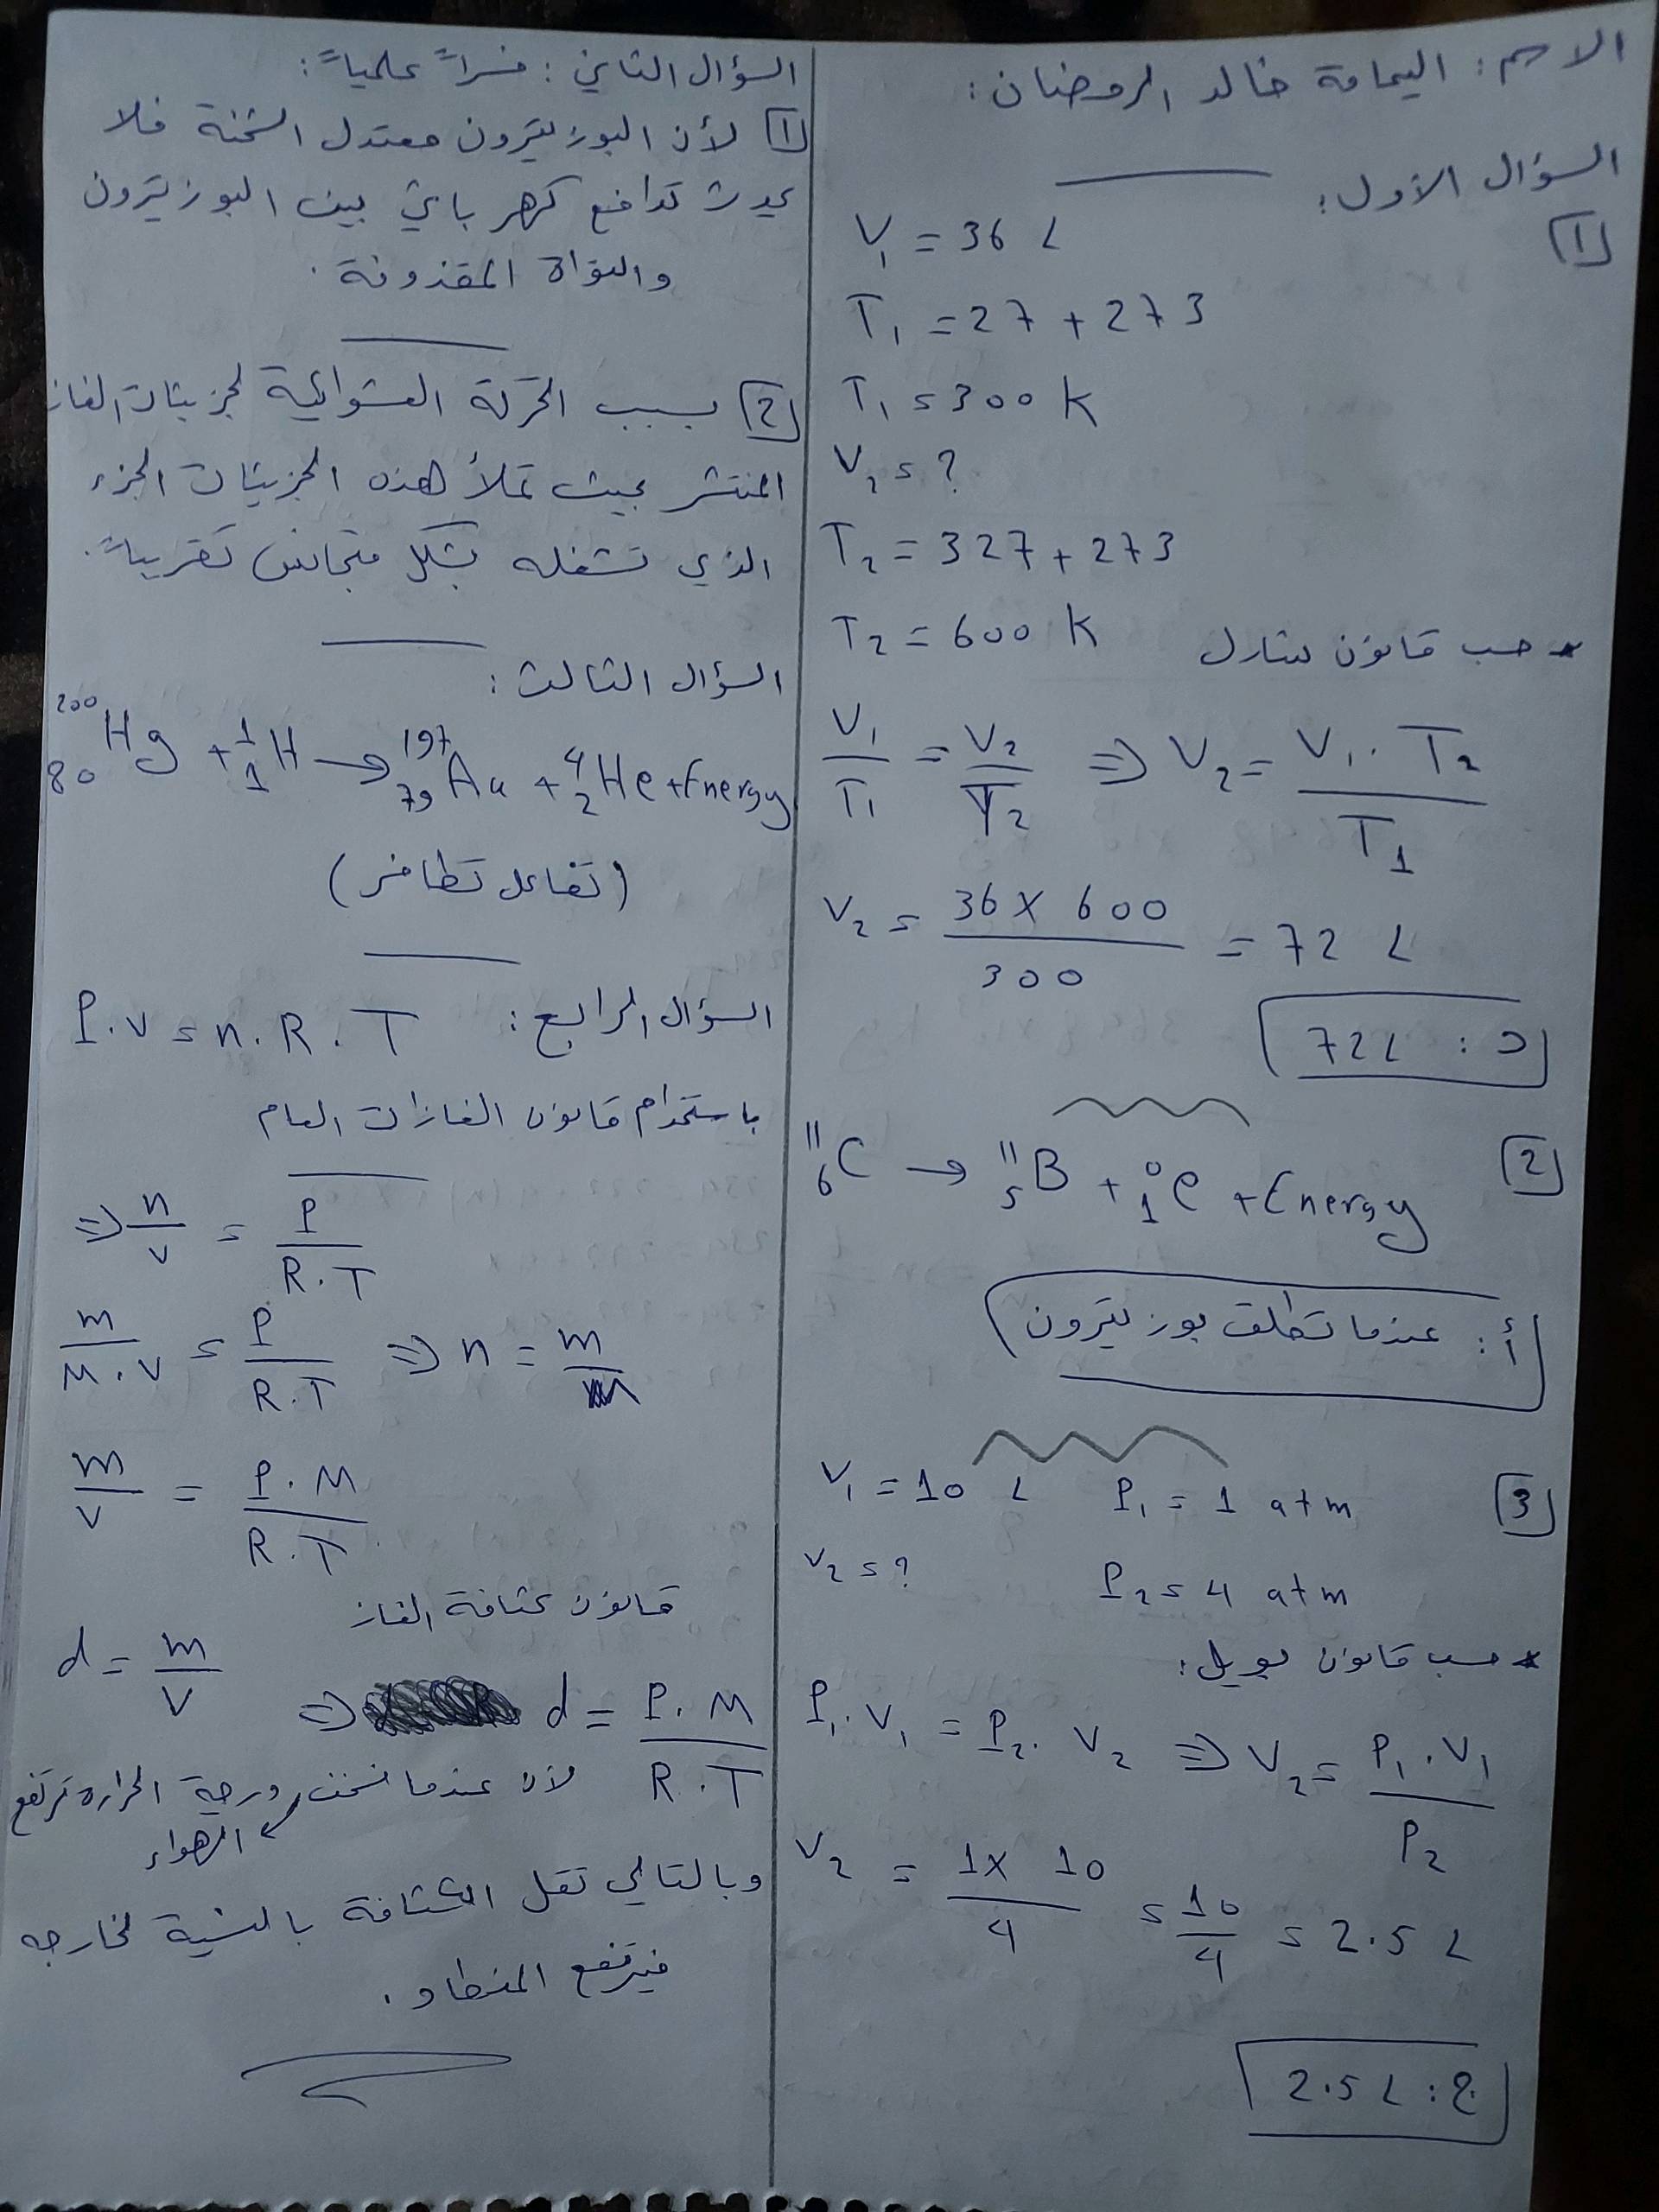 الاسم: اليمامة خالد الرمضان:
السؤال الأول:
1
V₁ = 36 L
T₁ = 27 + 273
T₁ = 300 K
V₂ = ?
T₂ = 327 + 273
T₂ = 600 K
* حسب قانون شارل
V₁/T₁ = V₂/T₂ ⇒ V₂ = V₁ . T₂ / T₁
V₂ = 36 × 600 / 300 = 72 L
د : 72 L
2
¹¹₆C → ¹¹₅B + ⁰₁e + Energy
أ: عندما تطلق بوزيترون
3
V₁ = 10 L P₁ = 1 atm
V₂ = ? P₂ = 4 atm
* حسب قانون بويل:
P₁ . V₁ = P₂ . V₂ ⇒ V₂ = P₁ . V₁ / P₂
V₂ = 1 × 10 / 4 = 10/4 = 2.5 L
ج : 2.5 L
السؤال الثاني : فسراً علمياً:
1 لأن البوزيترون معتدل الشحنة فلا
يحدث تدافع كهربائي بين البوزيترون
والنواة المقذوفة .
2 بسبب الحركة العشوائية لجزيئات الغاز
المنتشر بحيث تملأ هذه الجزيئات الجزء
الذي تشغله بشكل متجانس تقريباً.
السؤال الثالث :
²⁰⁰₈₀Hg + ¹₁H → ¹⁹⁷₇₉Au + ⁴₂He + Energy
(تفاعل تطافر)
السؤال الرابع : P.V = n.R.T
باستخدام قانون الغازات العام
⇒ n/V = P/R.T
m/M.V = P/R.T ⇒ n = m/M
m/V = P.M/R.T
قانون كثافة الغاز
d = m/V
⇒ d = P.M/R.T
لأن عندما نسخن الهواء درجة الحرارة ترتفع
وبالتالي تقل الكثافة بالنسبة لخارجه
فيرتفع المنطاد .